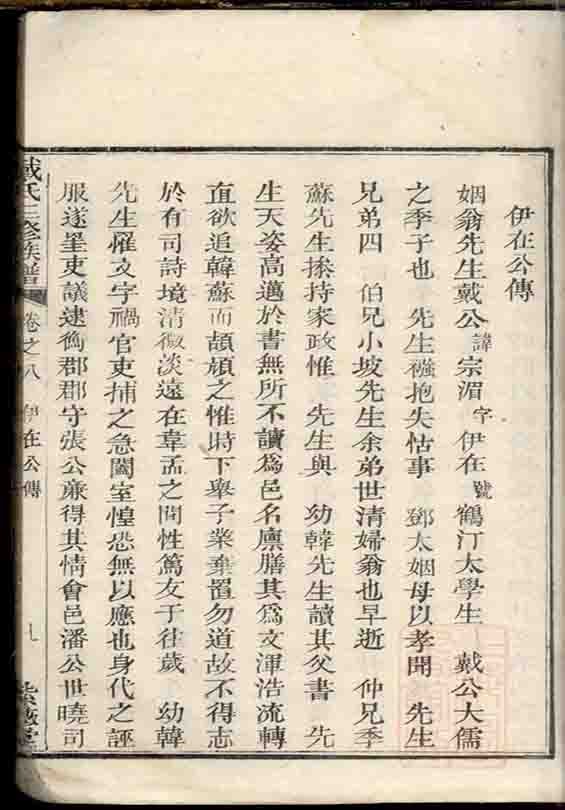 伊在公傳
姻翁先生戴公諱宗湄字伊在號鶴汀太學生 戴公大儒
之季子也 先生襁抱失怙事 鄧太姻母以孝聞 先生
兄弟四 伯兄小坡先生余弟世清婦翁也早逝 仲兄季
蘇先生揉持家政惟 先生與 幼韓先生讀其父書 先
生天姿高邁於書無所不讀爲邑名廩膳其爲文渾浩流轉
直欲追韓蘇而頡頏之惟時下舉子業棄置勿道故不得志
於有司詩境清微淡遠在韋孟之間性篤友于往歲 幼韓
先生罹文字禍官吏捕之急闔室惶恐無以應也身代之誣
服遂罣吏議逮衡郡郡守張公廉得其情會邑潘公世曉司
戴氏三修族譜 卷之八 伊在公傳 九 紫薇堂